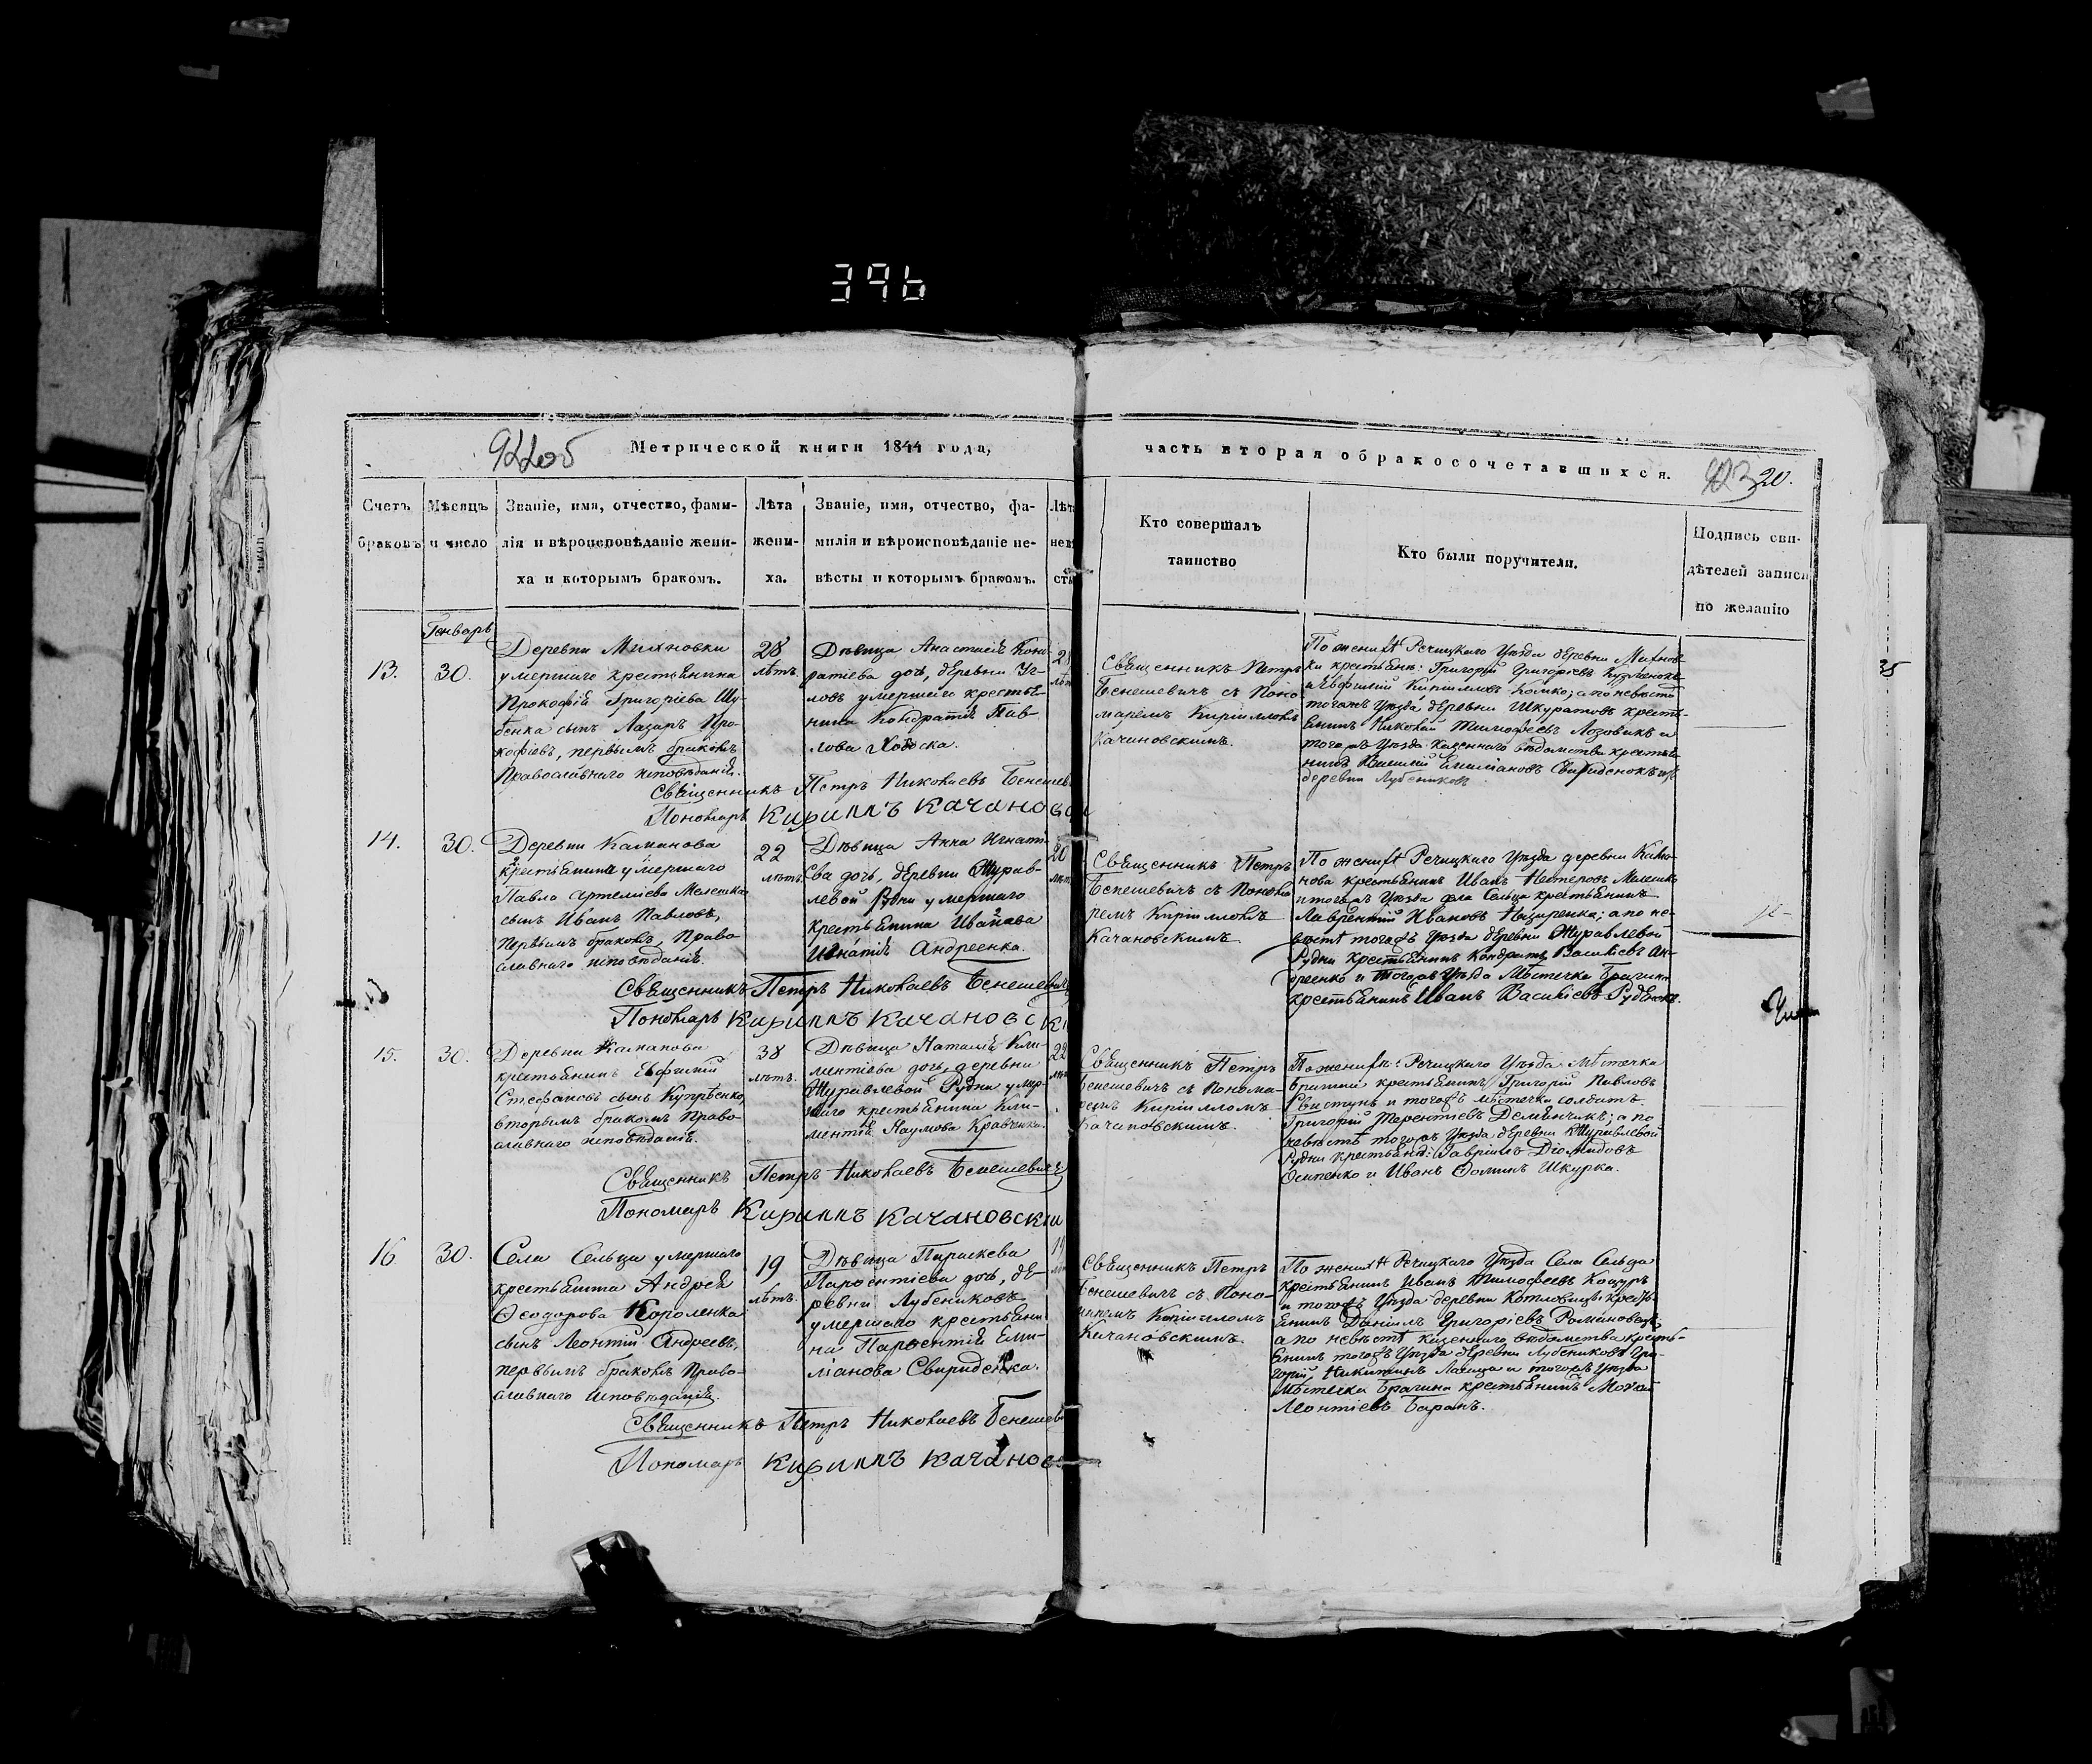 396
922об
Метрической книги 1844 года,
часть вторая о бракосочетавшихся.
923 20.
Счетъ браковъ
Мѣсяцъ и число
Званіе, имя, отчество, фами-
лія и вѣроисповѣданіе жени-
ха и которымъ бракомъ.
Лѣта
жени-
ха.
Званіе, имя, отчество, фа-
милія и вѣроисповѣданіе не-
вѣсты и которымъ бракомъ.
Лѣта
невѣ
сты
Кто совершалъ
таинство
Кто были поручители.
Подпись сви-
дѣтелей записи
по желанію
Генварь
13.
30.
Деревни Михновки
умершаго крестьянина
Прокофія Григоріева Шу-
бенка сынъ Лазарь Про-
кофіевъ, первымъ бракомъ
Православнаго исповѣданія.
28
лѣтъ
Дѣвица Анастасія Конд-
ратіева дочь, деревни Уг-
ловъ умершаго крестья-
нина Кондратія Пав-
лова
Священникъ Петръ
Бенешевичъ съ Поно-
маремъ Кирилломъ
Качановскимъ.
По женихѣ Речицкаго Уѣзда деревни Михнов-
ки крестьяне: Григорій Григоріевъ
и Евфимій Кирилловъ Комко; а по невѣстѣ
тогожъ Уѣзда деревни Шкуратовъ кресть-
янинъ Николай Тимофеевъ Лозовикъ и
тогожъ Уѣзда казеннаго вѣдомства крестья-
нинъ Емельяновъ Свириденокъ изъ
деревни Лубениковъ
35
Священникъ Петръ Николаевъ Бенешев
Пономарь Кириллъ Качановск
14.
30.
Деревни Каманова
крестьянина умершаго
Павла Артеміева Мелешка
сынъ Иванъ Павловъ,
первымъ бракомъ, Право-
славнаго исповѣданія.
22
лѣтъ.
Дѣвица Анна Игнаті-
ева дочь, деревни Журав-
левой Рудни умершаго
крестьянина Иванова
Игнатія Андреенка.
20
лѣт
Священникъ Петръ
Бенешевичъ съ Понома-
ремъ Кирилломъ
Качановскимъ
По женихѣ Речицкаго Уѣзда деревни Кама-
нова крестьянинъ Иванъ Нестеровъ Мелешко
и тогожъ Уѣзда села Сельца крестьянинъ
Лаврентій Ивановъ Назаренко; а по не-
вѣстѣ тогожъ Уѣзда деревни Журавлевой
Рудни крестьянинъ Кондратъ Василіевъ Ан-
дреенко и тогожъ Уѣзда Мѣстечка Брагина
крестьянинъ Иванъ Василіевъ Руденокъ.
Священникъ Петръ Николаевъ Бенешевичъ
Пономарь Кириллъ Качановски
15.
30.
Деревни Каманова
крестьянинъ Евфимій
Стефановъ сынъ Купрѣенко,
вторымъ бракомъ Право-
славнаго исповѣданія.
38
лѣтъ.
Дѣвица Наталія Кли-
ментіева дочь, деревни
Журавлевой Рудни умер-
шаго крестьянина Кли-
ментія Наумова Кравченка.
22
Священникъ Петръ
Бенешевичъ съ Понома-
ремъ Кирилломъ
Качановскимъ.
По женихѣ: Речицкаго Уѣзда Мѣстечка
Брагина крестьянинъ Григорій Павловъ
Свистунъ и тогожъ мѣстечка солдатъ
Григорій Терентіевъ Деменчикъ; а по
невѣстѣ тогожъ Уѣзда деревни Журавлевой
Рудни крестьяне: Гавріилъ Діомидовъ
Осипенко и Иванъ Ѳоминъ Шкурка.
Священникъ Петръ Николаевъ Бенешевичъ
Пономарь Кириллъ Качановскій
16
30.
Села Сельца умершаго
крестьянина Андрея
Ѳеодорова Короленка
сынъ Леонтій Андреевъ,
первымъ бракомъ Право-
славнаго исповѣданія.
19
лѣтъ.
Дѣвица Параскева
Парѳентіева дочь, де-
ревни Лубениковъ
умершаго крестьяни-
на Парѳентія Еми-
ліанова Свириденка.
Священникъ Петръ
Бенешевичъ съ Поно-
маремъ Кирилломъ
Качановскимъ.
По женихѣ Речицкаго Уѣзда Села Сельца
крестьянинъ Иванъ Тимофеевъ Коцуръ
и тогожъ Уѣзда деревни Котловицъ кресть-
янинъ Даніилъ Григоріевъ Романовецъ
а по невѣстѣ казеннаго вѣдомства кресть-
янинъ тогожъ Уѣзда деревни Лубениковъ Гри-
горій Никитинъ и тогожъ Уѣзда
Мѣстечка Брагина крестьянинъ Мокій
Леонтіевъ Баранъ.
Священникъ Петръ Николаевъ Бенешев
Пономарь Кириллъ Качановс